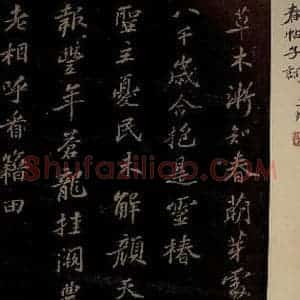 春帖子詞
草木漸知春萌芽處
八千歲合抱是靈椿
聖主憂民未解顏天
報豐年蒼龍挂闕農
老相呼看籍田
Shufaziliao.COM